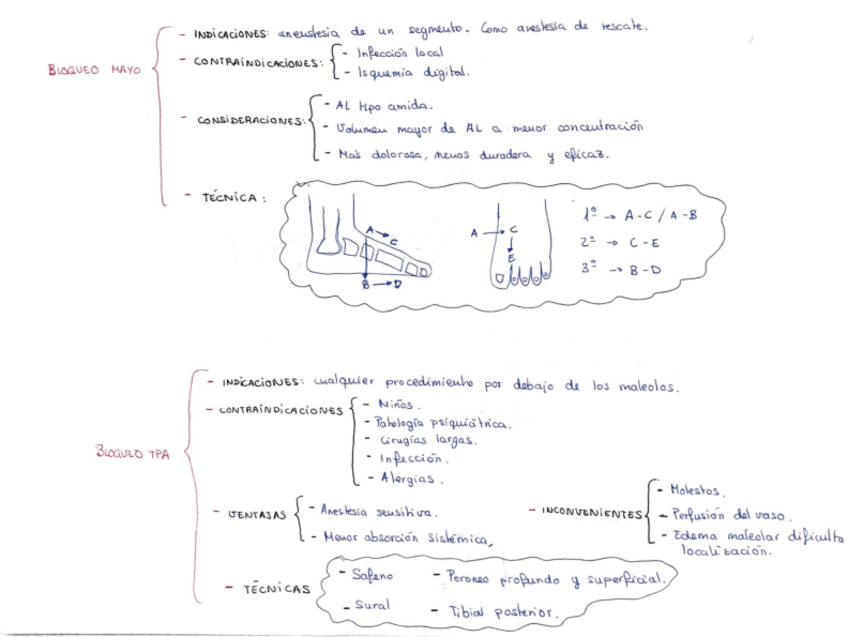 BLOQUEO MAYO
- INDICACIONES: aneustesia de un segmento. Como anestesia de rescate.
- CONTRAINDICACIONES:
- Infección local
- Isquemia digital.
- CONSIDERACIONES:
- AL tipo amida.
- Volumen mayor de AL a menor concentración
- Más dolorosa, menos duradera y eficaz.
- TÉCNICA:
A → C
B → D
A → C
E
1º → A-C / A-B
2º → C-E
3º → B-D
BLOQUEO TPA
- INDICACIONES: cualquier procedimiento por debajo de los maleolos.
- CONTRAINDICACIONES
- Niños.
- Patología psiquiátrica.
- Cirugías largas.
- Infección.
- Alergias.
- VENTAJAS
- Anestesia sensitiva.
- Menor absorción sistémica,
- INCONVENIENTES
- Molestos.
- Perfusión del vaso.
- Edema maleolar dificulta
localización.
- TÉCNICAS
- Safeno
- Peroneo profundo y superficial.
- Sural
- Tibial posterior.